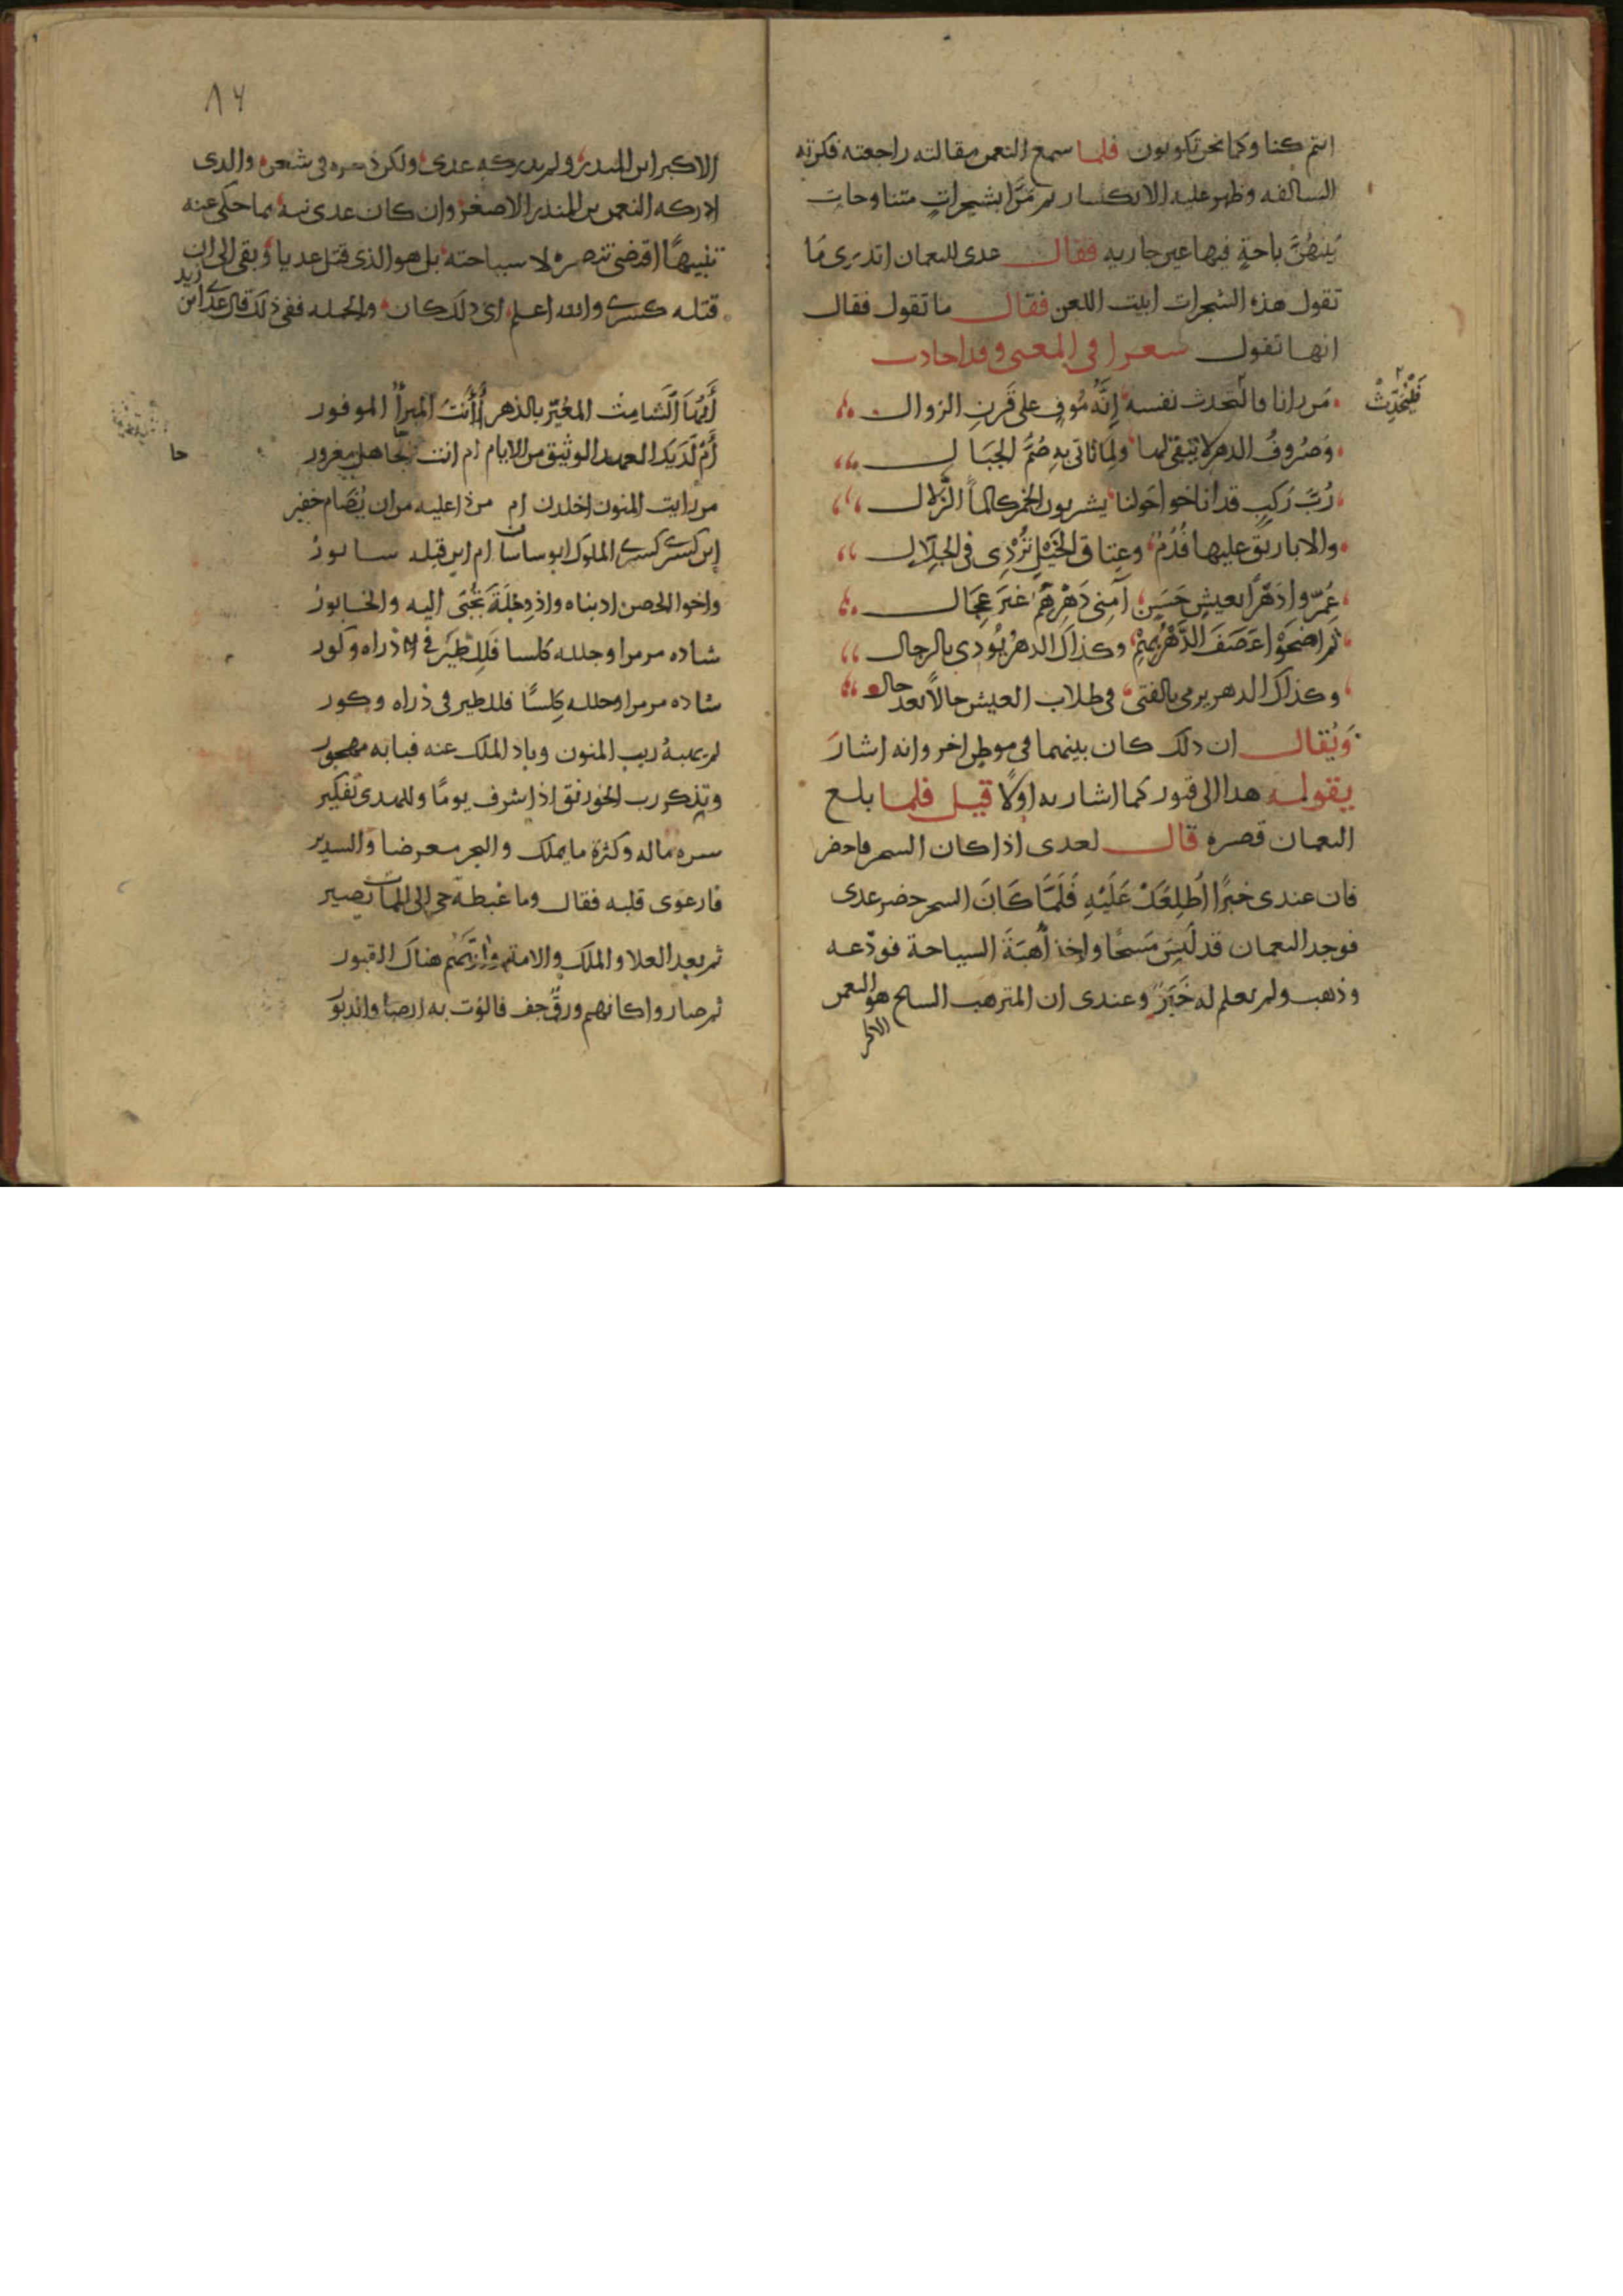 انتم كنا وكما نحن تكونون فلما سمع النعمن مقالته راجعته فكرته
السالفه وظهر عليه الانكسار ثم مرا بشجرات متناوحات
بينهن باحة فيها عين جاريه فقال عدى للنعمان اتدرى ما
تقول هذه الشجرات ابيت اللعن فقال ما تقول فقال
انها تقول شعرا في المعنى وقد اجادت
من رانا فالتحدث نفسه انه موف على قرن الزوال
فليحدث
وصروف الدهر لا يبقى لها ولما تاتى به صم الجبال
رب ركب قد اناخوا حولنا يشربون الخمر كالما الزلال
والاباريق عليها فدم وعتاق الخيل تردى في الجلال
عمروا دهرا بعيش حسن آمني دهرهم غير عجال
ثم اضحوا عصف الدهر بهم وكذاك الدهر يودى بالرجال
وكذاك الدهر يرمى بالفتى في طلاب العيش حالا بعد حال
ويقال ان ذلك كان بينهما في موطن اخر وانه اشار
بقوله هذا الى قبور كما اشار به اولا قيل فلما بلغ
النعمان قصره قال لعدى اذا كان السحر فاحضر
فان عندى خبرا اطلعك عليه فلما كان السحر حضر عدى
فوجد النعمان قد لبس مسحا واخذ أهبة السياحة فودعه
وذهب ولم يعلم له خبر وعندى ان المترهب السايح هو النعمن
الاكبر
٨٧
الاكبر ابن المنذر ولم يدركه عدى ولكن ذكره في شعره والذى
ادركه النعمن بن المنذر الاصغر وان كان عدى نبه بما حكى عنه
تنبيها اقتضى تنصره لا سياحته بل هو الذى قتل عديا وبقى الى ان
قتله كسرى والله اعلم اى ذلك كان والجمله ففى ذلك قال عدى ابن
زيد
أيها الشامت المعير بالدهر أأنت المبرأ الموفور
أم لديك العهد الوثيق من الايام ام انت جاهل مغرور
من رايت المنون اخلدن ام من ذا عليه من ان يضام خفير
اين كسرى كسرى الملوك ابو ساسان ام اين قبله سابور
واخوا الحصن اذ بناه واذ دجلة تجبى اليه والخابور
شاده مرمرا وجلله كلسا فللطير في ذراه وكور
شاده مرمرا وجلله كلسا فللطير في ذراه وكور
لم يهبه ريب المنون وباد الملك عنه فبابه مهجور
وتذكر رب الخورنق اذ اشرف يوما وللهدى تفكير
سره ماله وكثرة ما يملك والبحر معرضا والسدير
فارعوى قلبه فقال وما غبطة حي الى الممات يصير
ثم بعد العلا والملك والامة وارتهم هناك القبور
ثم صاروا كانهم ورق جف فالوت به الصبا والدبور